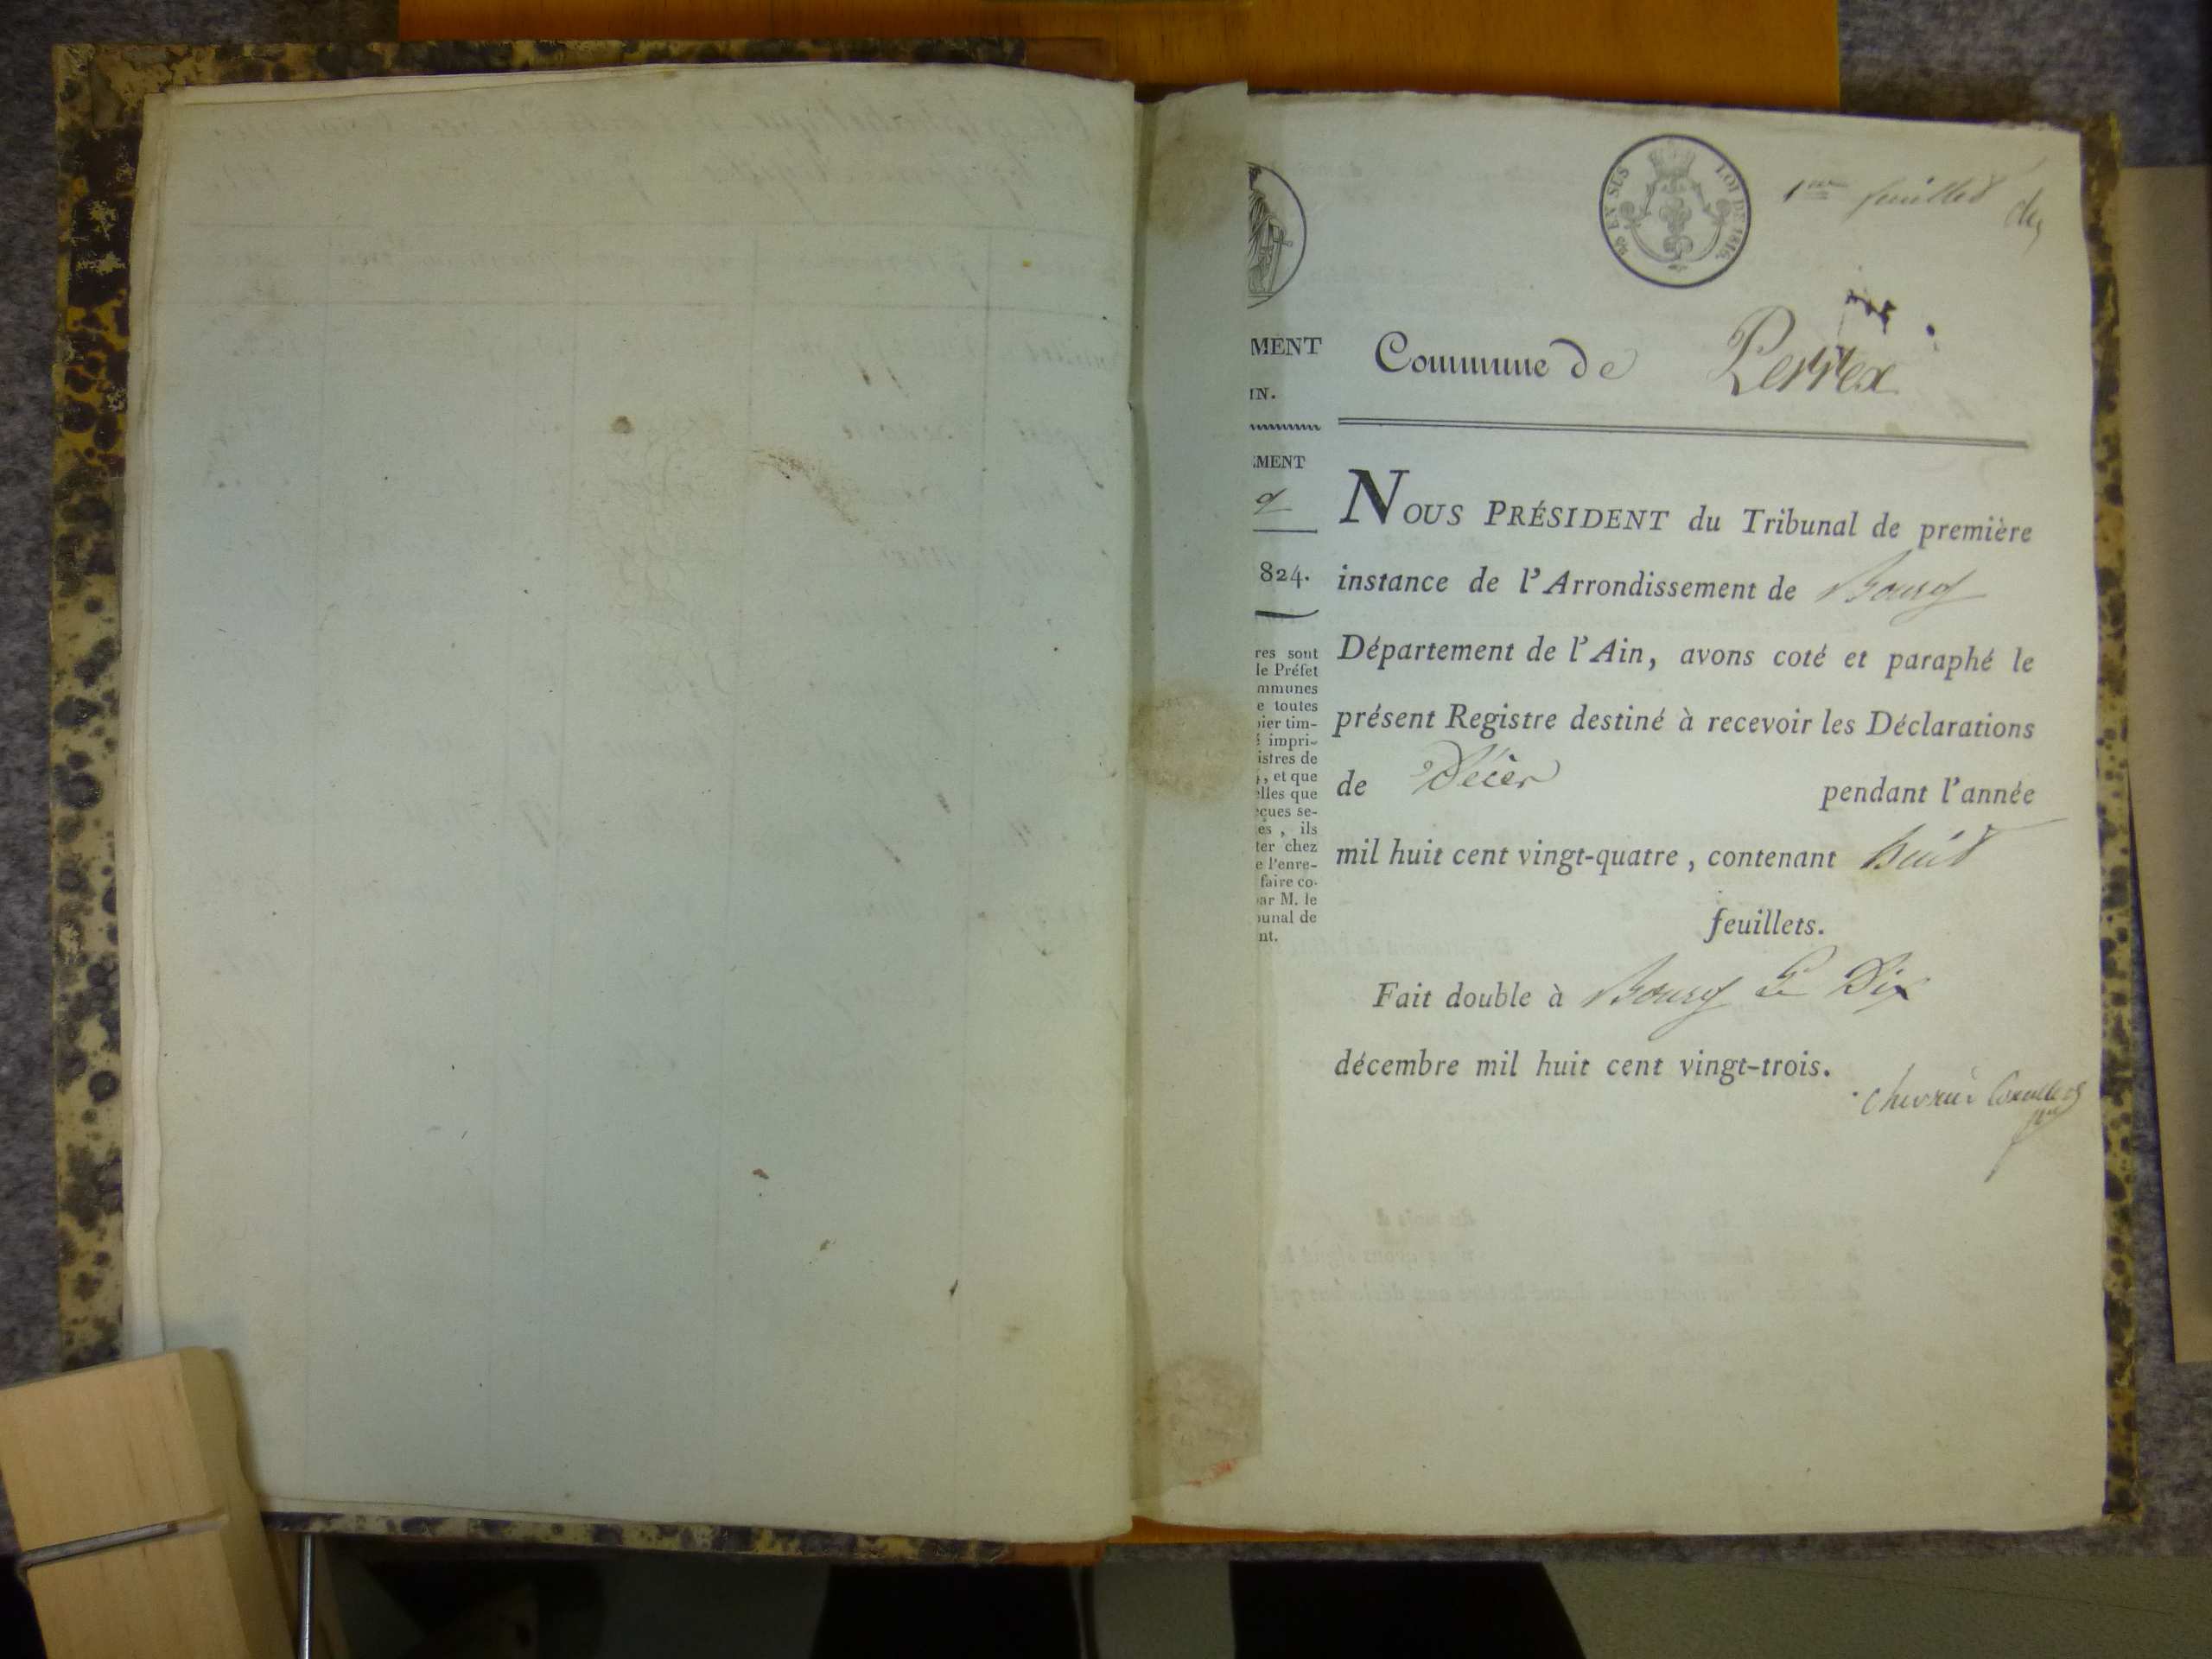 EN SUS
LOI DE 1816.
1er feuillet
Commune de Perrex
NOUS PRÉSIDENT du Tribunal de première
instance de l'Arrondissement de Bourg
Département de l'Ain, avons coté et paraphé le
présent Registre destiné à recevoir les Déclarations
de Décès pendant l'année
mil huit cent vingt-quatre, contenant huit
feuillets.
Fait double à Bourg Le Dix
décembre mil huit cent vingt-trois.
MENT
IN.
EMENT
824.
res sont
le Préfet
mmunes
e toutes
pier tim-
é impri-
istres de
s, et que
elles que
eçues se-
es, ils
ter chez
e l'enre-
faire co-
par M. le
bunal de
nt.